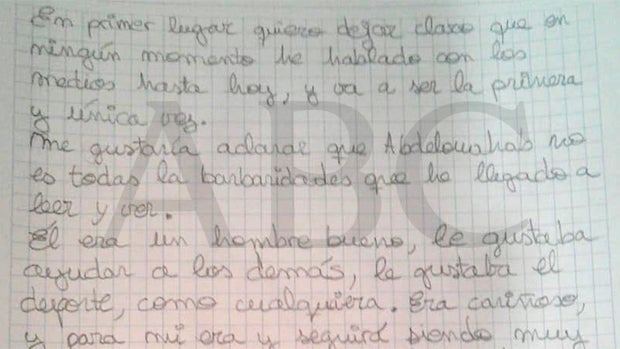 En primer lugar quiero dejar claro que en
ningún momento he hablado con los
medios hasta hoy, y va a ser la primera
y única vez.
Me gustaría aclarar que Abdelouahab no
es todas la barbaridades que he llegado a
leer y ver.
Él era un hombre bueno, le gustaba
ayudar a los demás, le gustaba el
deporte, como cualquiera. Era cariñoso,
y para mi era y seguirá siendo muy
ABC